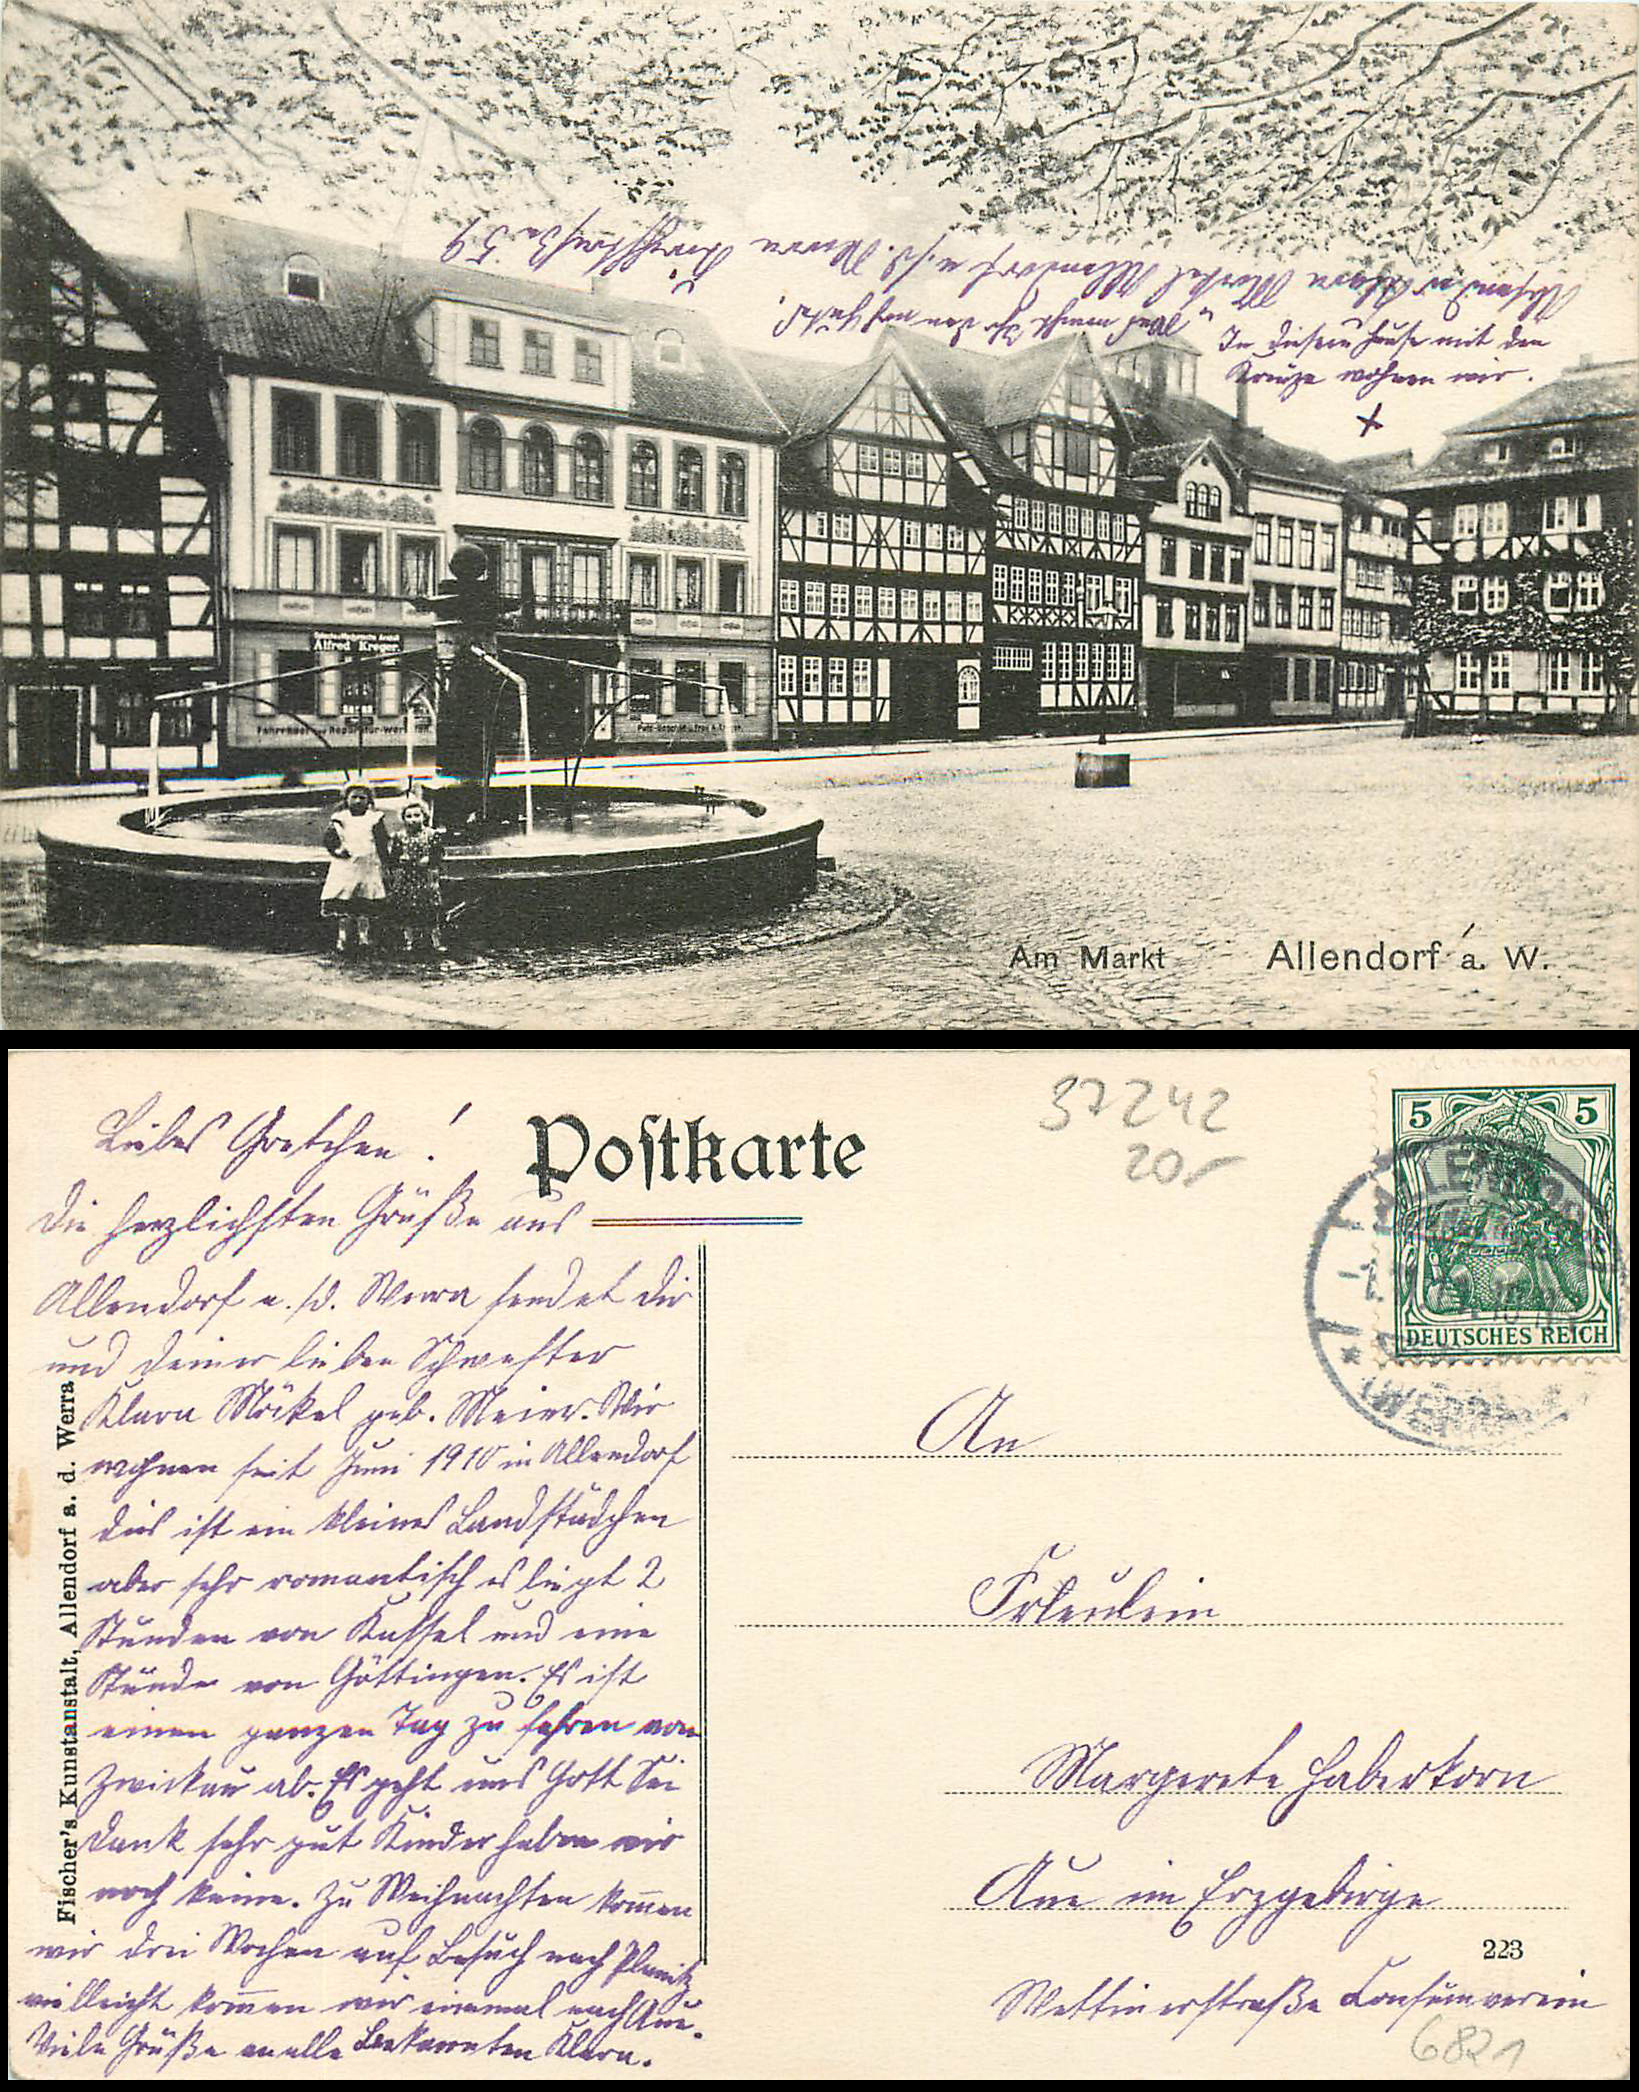 Absender Klara Möckel Allendorf a./d. Werra Kirchstraße 59
In diesem Hause mit den
Kreuze wohnen wir.
Alfred Kreger.
Fahrräder Reparatur-Werkstatt
Am Markt Allendorf a. W.
Postkarte
Liebes Gretchen!
Die herzlichsten Grüße aus
Allendorf a./d. Werra sendet dir
und deiner lieben Schwester
Klara Möckel geb. Meier. Wir
wohnen seit Juni 1910 in Allendorf
dies ist ein kleines Landstädchen
aber sehr romantisch es liegt 2
Stunden von Kassel und eine
Stunde von Göttingen. Es ist
einen ganzen Tag zu fahren von
Zwickau ab. Es geht uns Gott sei
dank sehr gut Kinder haben wir
noch keine. Zu Weihnachten kom̄en
wir drei Wochen auf Besuch nach Planitz
vielleicht kom̄en wir einmal nach Aue.
Viele Grüße an alle Bekannten Klara.
Fischer's Kunstanstalt, Allendorf a. d. Werra.
37242
20.-
5 5
DEUTSCHES REICH
ALLENDORF
(WERRA)
An
Fräulein
Margerete Haberkorn
Aue im Erzgebirge
223
Wettinerstraße Consumverein
6821